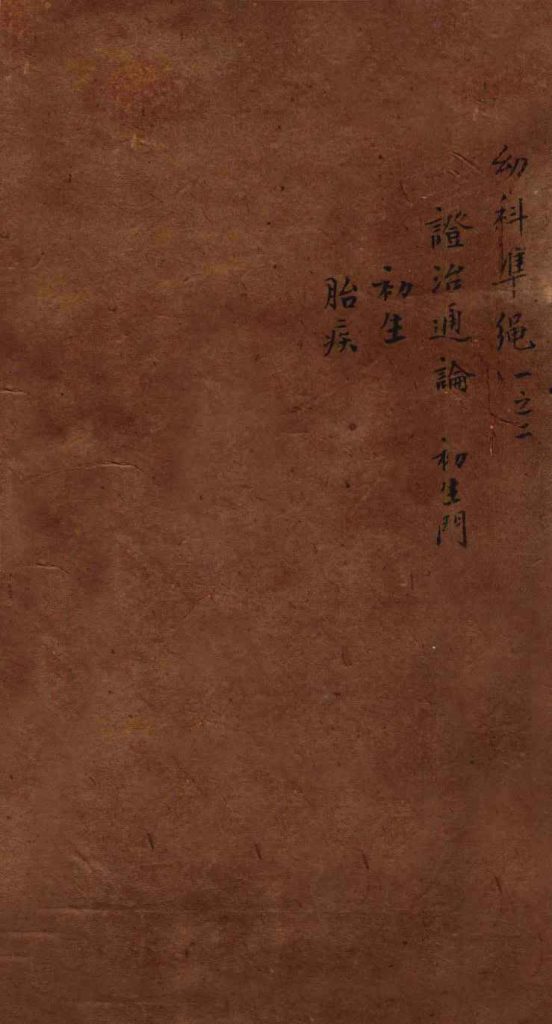 幼科準繩一之二
證治通論 初生門
初生
胎疾